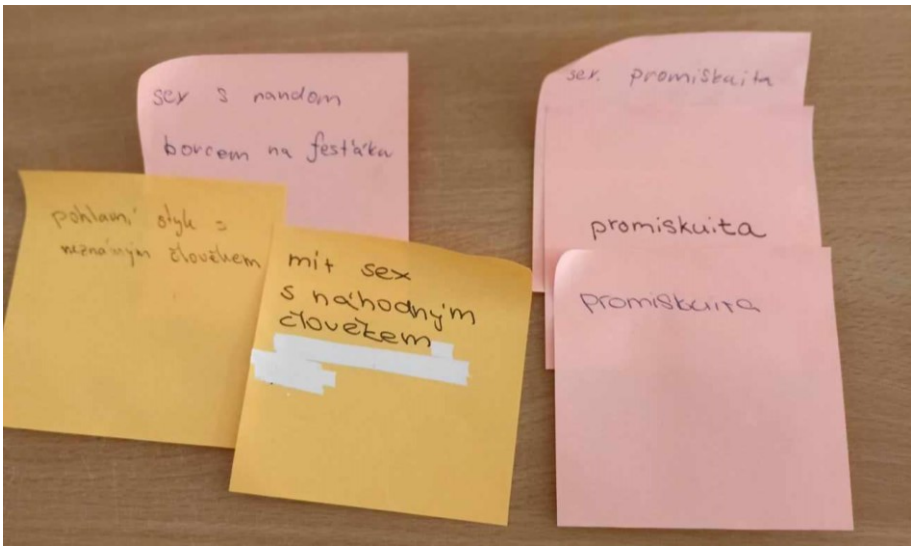 sex s random
borcem na festáku
pohlavní styk s
neznámým člověkem
mít sex
s náhodným
člověkem
sex. promiskuita
promiskuita
promiskuita